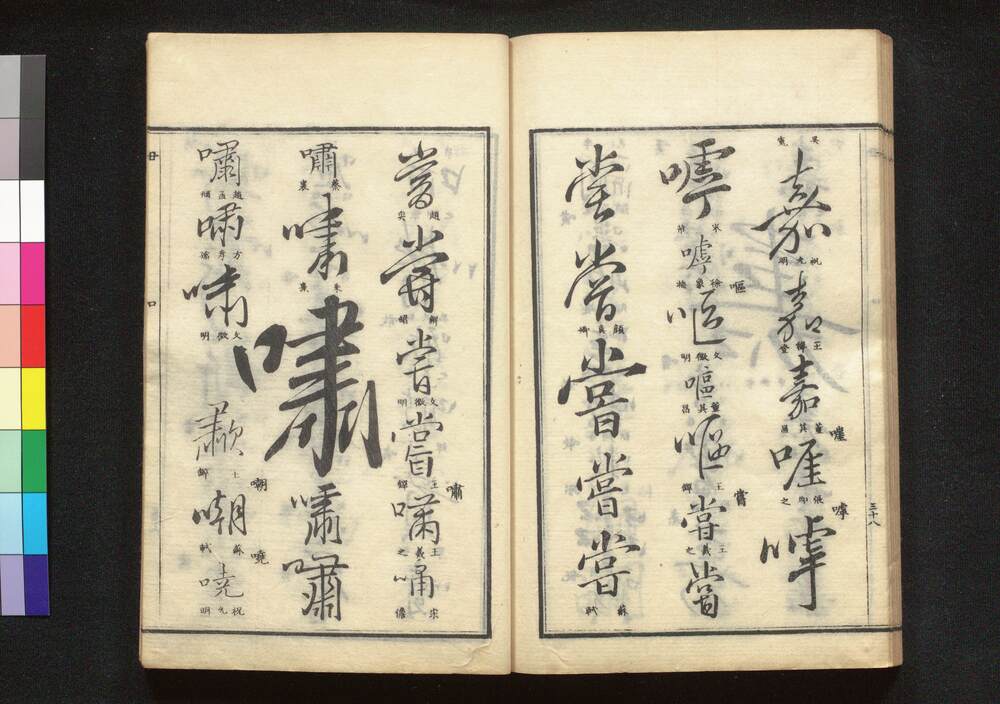 吳寛
嘉 祝允明
嘉 王
嘉 董其昌
張即之
嘑
嘑 米芾
嘑 徐
嘔
嘔 文徴明
嘔 董其昌
嘔 王鐸
嘗
嘗 王羲之
嘗
嘗
嘗 顏真卿
嘗
嘗
嘗 蘇軾
三十八
嘗 趙奕
嘗
嘗 文徴明
嘗 王鐸
嘯
嘯 王羲之
嘯 宋儋
嘯 蔡襄
嘯 朱熹
嘯
嘯
嘯
嘯 趙孟頫
嘯 方孝孺
嘯 文徴明
歗 王鐸
嘲
嘲 蘇軾
嘵
嘵 祝允明
口